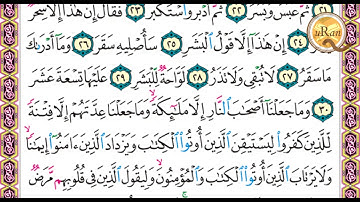 ٢١ ثُمَّ عَبَسَ وَبَسَرَ ٢٢ ثُمَّ أَدْبَرَ وَٱسْتَكْبَرَ ٢٣ فَقَالَ إِنْ هَٰذَآ إِلَّا سِحْرٌ
٢٤ إِنْ هَٰذَآ إِلَّا قَوْلُ ٱلْبَشَرِ ٢٥ سَأُصْلِيهِ سَقَرَ ٢٦ وَمَآ أَدْرَىٰكَ
مَا سَقَرُ ٢٧ لَا تُبْقِى وَلَا تَذَرُ ٢٨ لَوَّاحَةٌ لِّلْبَشَرِ ٢٩ عَلَيْهَا تِسْعَةَ عَشَرَ
٣٠ وَمَا جَعَلْنَآ أَصْحَٰبَ ٱلنَّارِ إِلَّا مَلَٰٓئِكَةً وَمَا جَعَلْنَا عِدَّتَهُمْ إِلَّا فِتْنَةً
لِّلَّذِينَ كَفَرُوا۟ لِيَسْتَيْقِنَ ٱلَّذِينَ أُوتُوا۟ ٱلْكِتَٰبَ وَيَزْدَادَ ٱلَّذِينَ ءَامَنُوٓا۟ إِيمَٰنًا
وَلَا يَرْتَابَ ٱلَّذِينَ أُوتُوا۟ ٱلْكِتَٰبَ وَٱلْمُؤْمِنُونَ وَلِيَقُولَ ٱلَّذِينَ فِى قُلُوبِهِم مَّرَضٌ
uRan